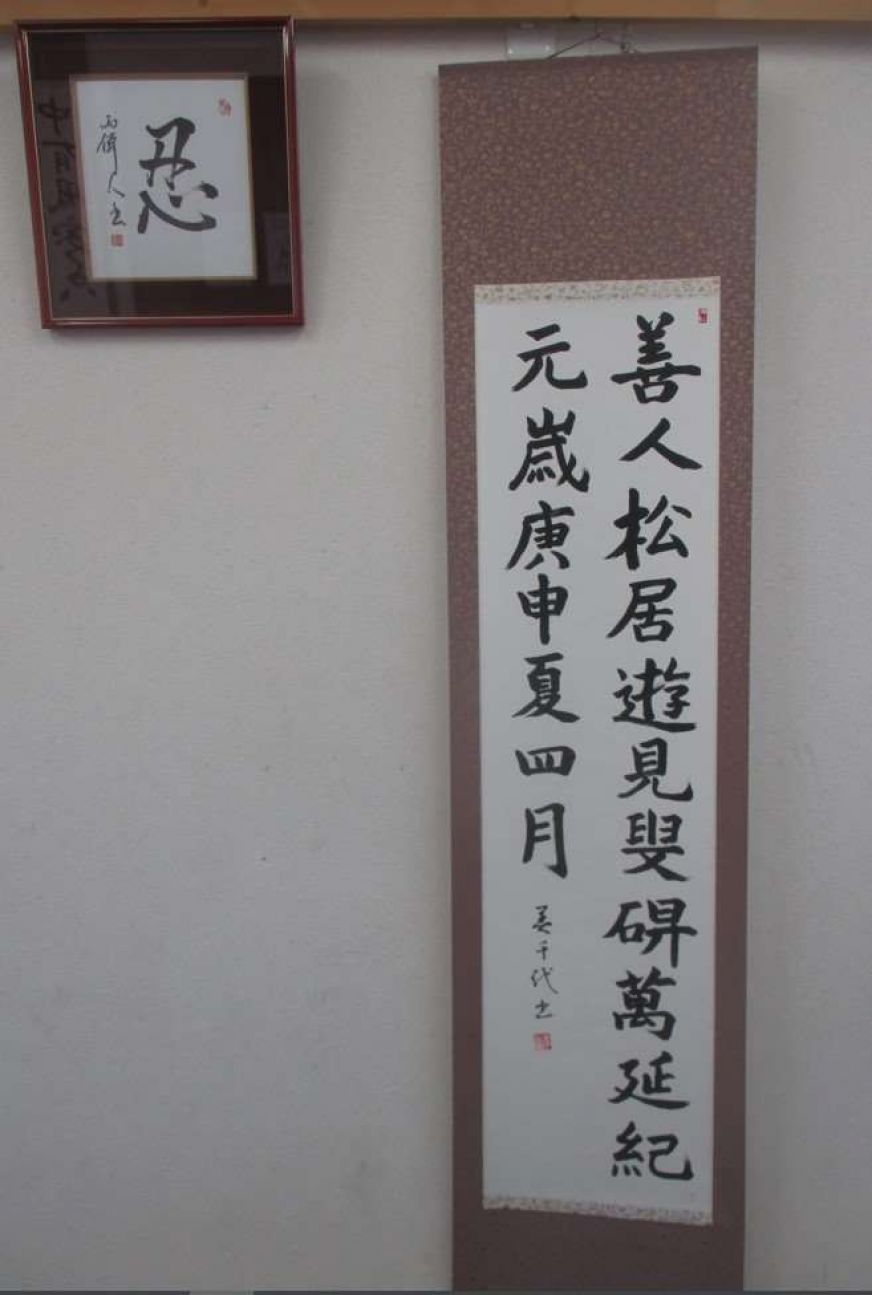 忍
善人松居遊見叟碑萬延紀
元歳庚申夏四月
美千代書